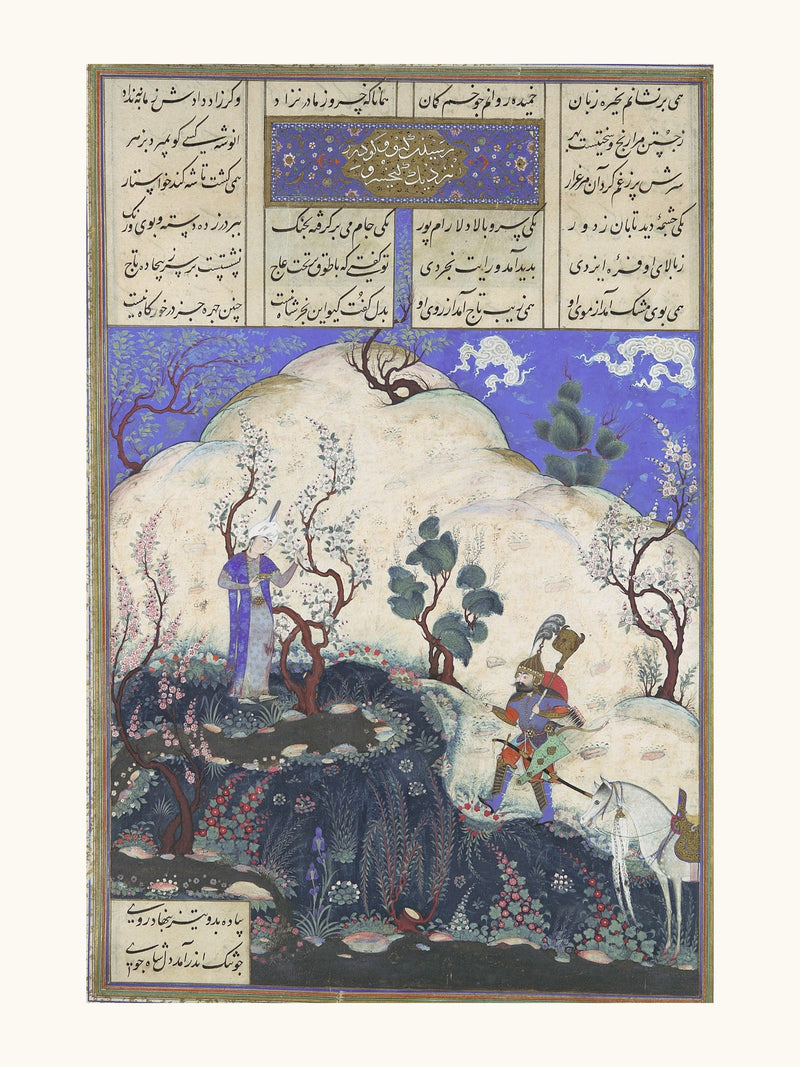 همی برفشانم بخیره خمیده روانم چو خم کمان همانا که خسرو ز مادر نزاد وگر زاد دادش زمانه بداد
رسیدن گیو گودرز
نزدیک کیخسرو
ز جستن مرا رنج و سختیست بهر انوشه کسی کو بمیرد بزهر
سرش پر ز غم گرد آن مرغزار همی گشت تا شه کند خواستار
یکی چشمهٔ دید تابان ز دور یکی سرو بالا دلارام پور یکی جام می برگرفته بچنگ بسر بر زده دسته و بوی و رنگ
ز بالای او فرهٔ ایزدی بدید آمد و رایت بخردی تو گفتی که با طوق تخت عاج نشستست بر سر ز بیجاده تاج
همی بوی مشک آمد از موی او همی زیب تاج آمد از روی او بدل گفت گیو این بجز شاه نیست چنین چهره جز در خور گاه نیست
پیاده بدو تیز بنهاد روی
چو تنگ اندر آمد دل شاه جوی